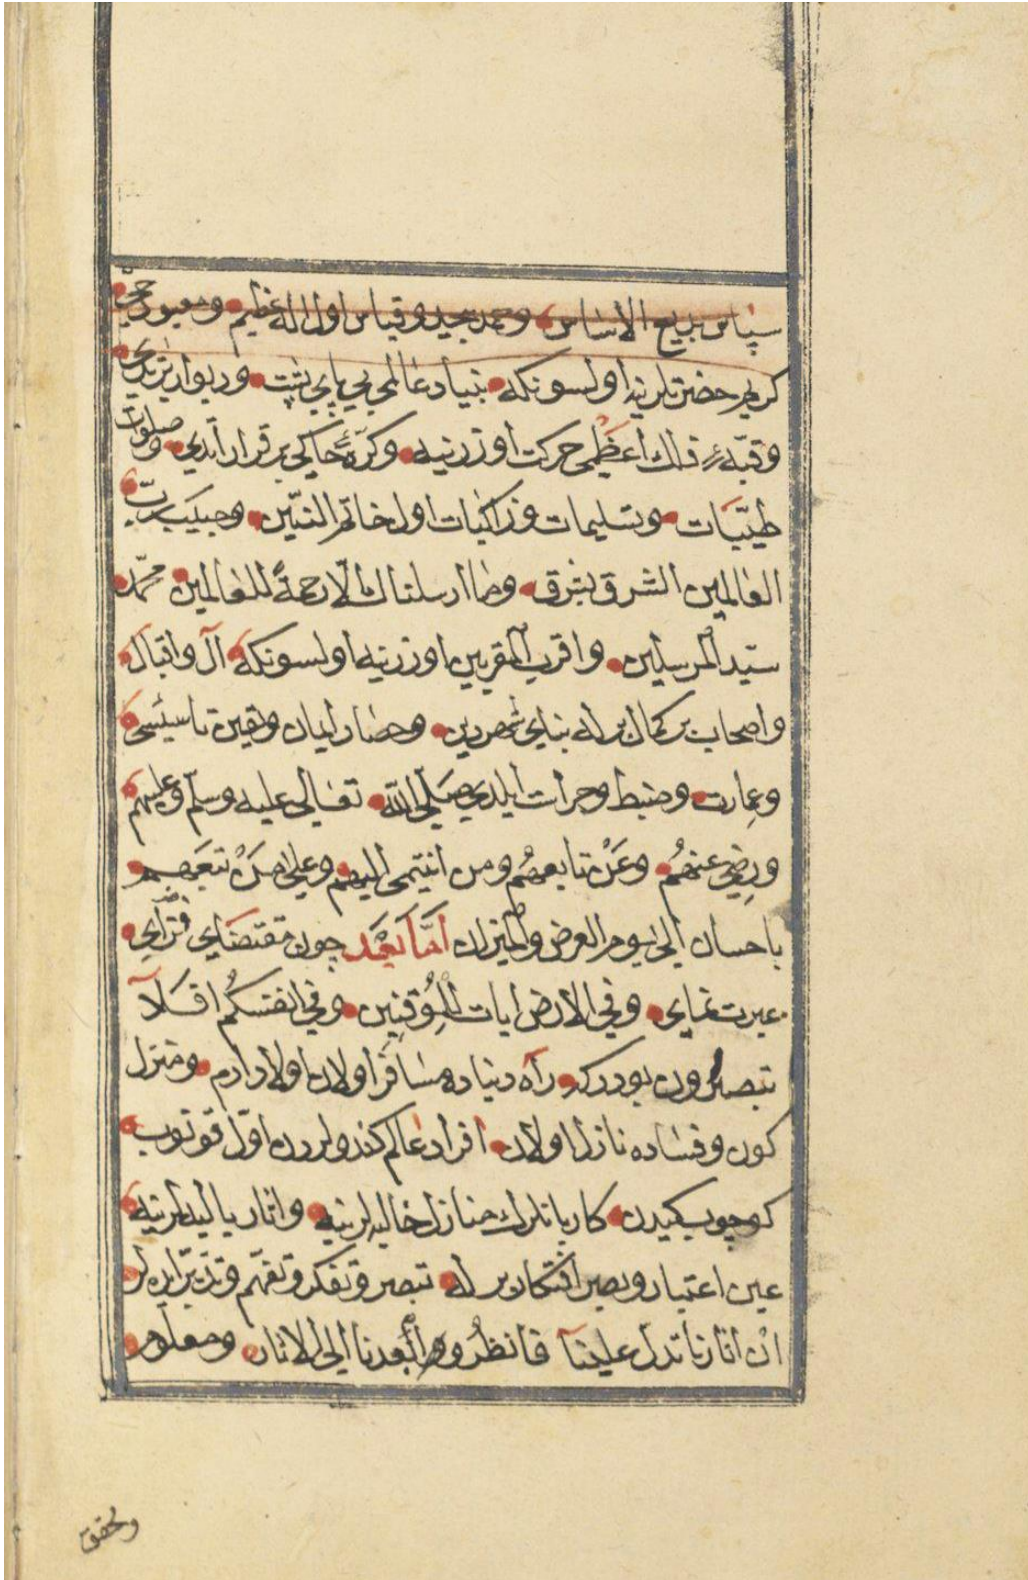 سپاس بديع الاساس وحمد بيحد وقياس اول اله عظيم ومعبود حي
كريم حضرتلرينه اولسونكه بنياد عالمي بي پاي پشت وديوار يرتدي
وقبۀ فلك اعظمى حركت اوزرينه وكرۀ خاكى برقرار ايتدي وصلوات
طيبات وتسليمات وزاكيات اول خاتم النبيين وحبيب رب
العالمين المشرق بشرق وما ارسلناك الا رحمة للعالمين محمد
سيد المرسلين واقرب المقربين اوزرينه اولسونكه آل واقبال
واصحاب بركمال برله بناي شهر دين وحصار ايمان ويقين تاسيسى
وعمارت وضبط وحراست ايلدي صلى الله تعالى عليه وسلم وعليهم
ورضي عنهم وعن تابعهم ومن انتمى اليهم وعلى من تبعهم
باحسان الى يوم العرض والميزان اما بعد چون مقتضاي
عبرت نماي وفي الارض ايات للموقنين وفي انفسكم افلا
تبصرون بودركه راه دنياده مسافر اولان اولاد ادم ومنزل
كون وفساده نازل اولان افراد عالم كندولردن اول قونوب
كوچوب كيدن كاربانلرك منازل خاليه لرينه واثار باليه لرينه
عين اعتبار وبصر افتكار برله تبصر وتفكر وتفهم وتدبر ايده لر
ان اثارنا تدل علينا فانظروا بعدنا الى الاثار ومعلوم
ومحقق